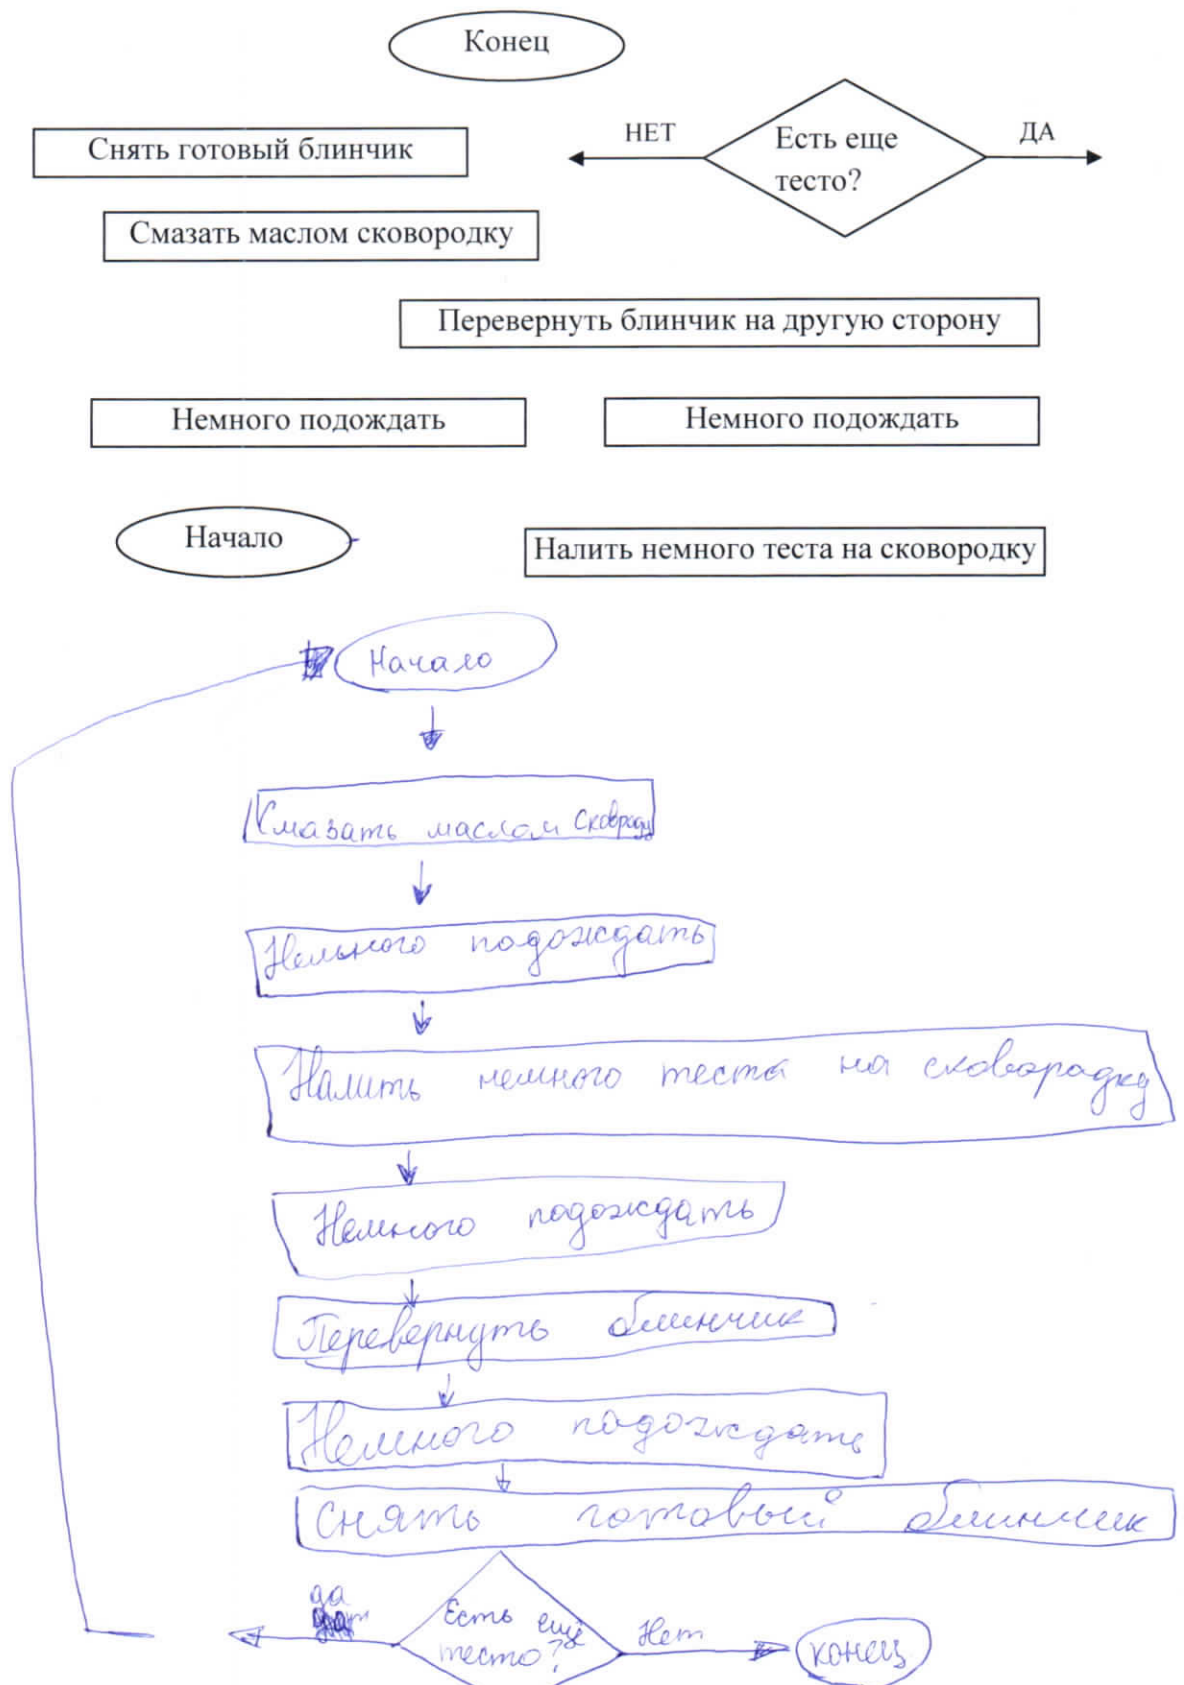 Конец
НЕТ
Есть еще
тесто?
ДА
Снять готовый блинчик
Смазать маслом сковородку
Перевернуть блинчик на другую сторону
Немного подождать
Немного подождать
Начало
Налить немного теста на сковородку
Начало
Смазать маслом сковроду
Немного подождать
Налить немного теста на сковорадку
Немного подождать
Перевернуть блинчик
Немного подождать
Снять готовый блинчик
да
Есть ещё
тесто?
Нет
конец